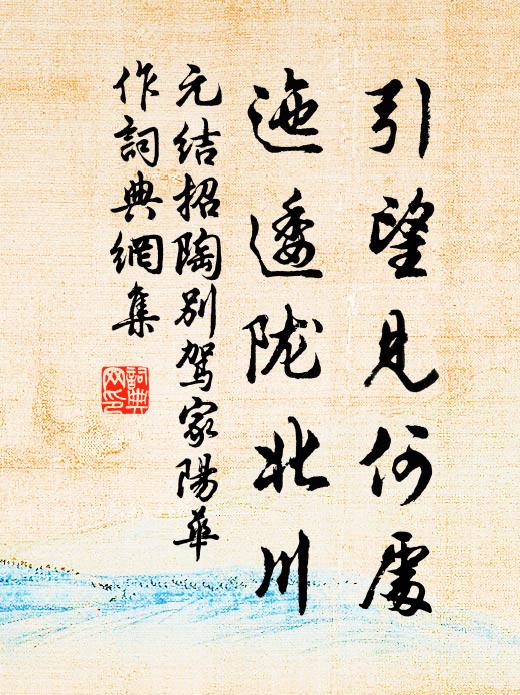 引望見何處
迤逶陇北川
元结招陶別駕家陽華
作詞典網集
詞典
网印